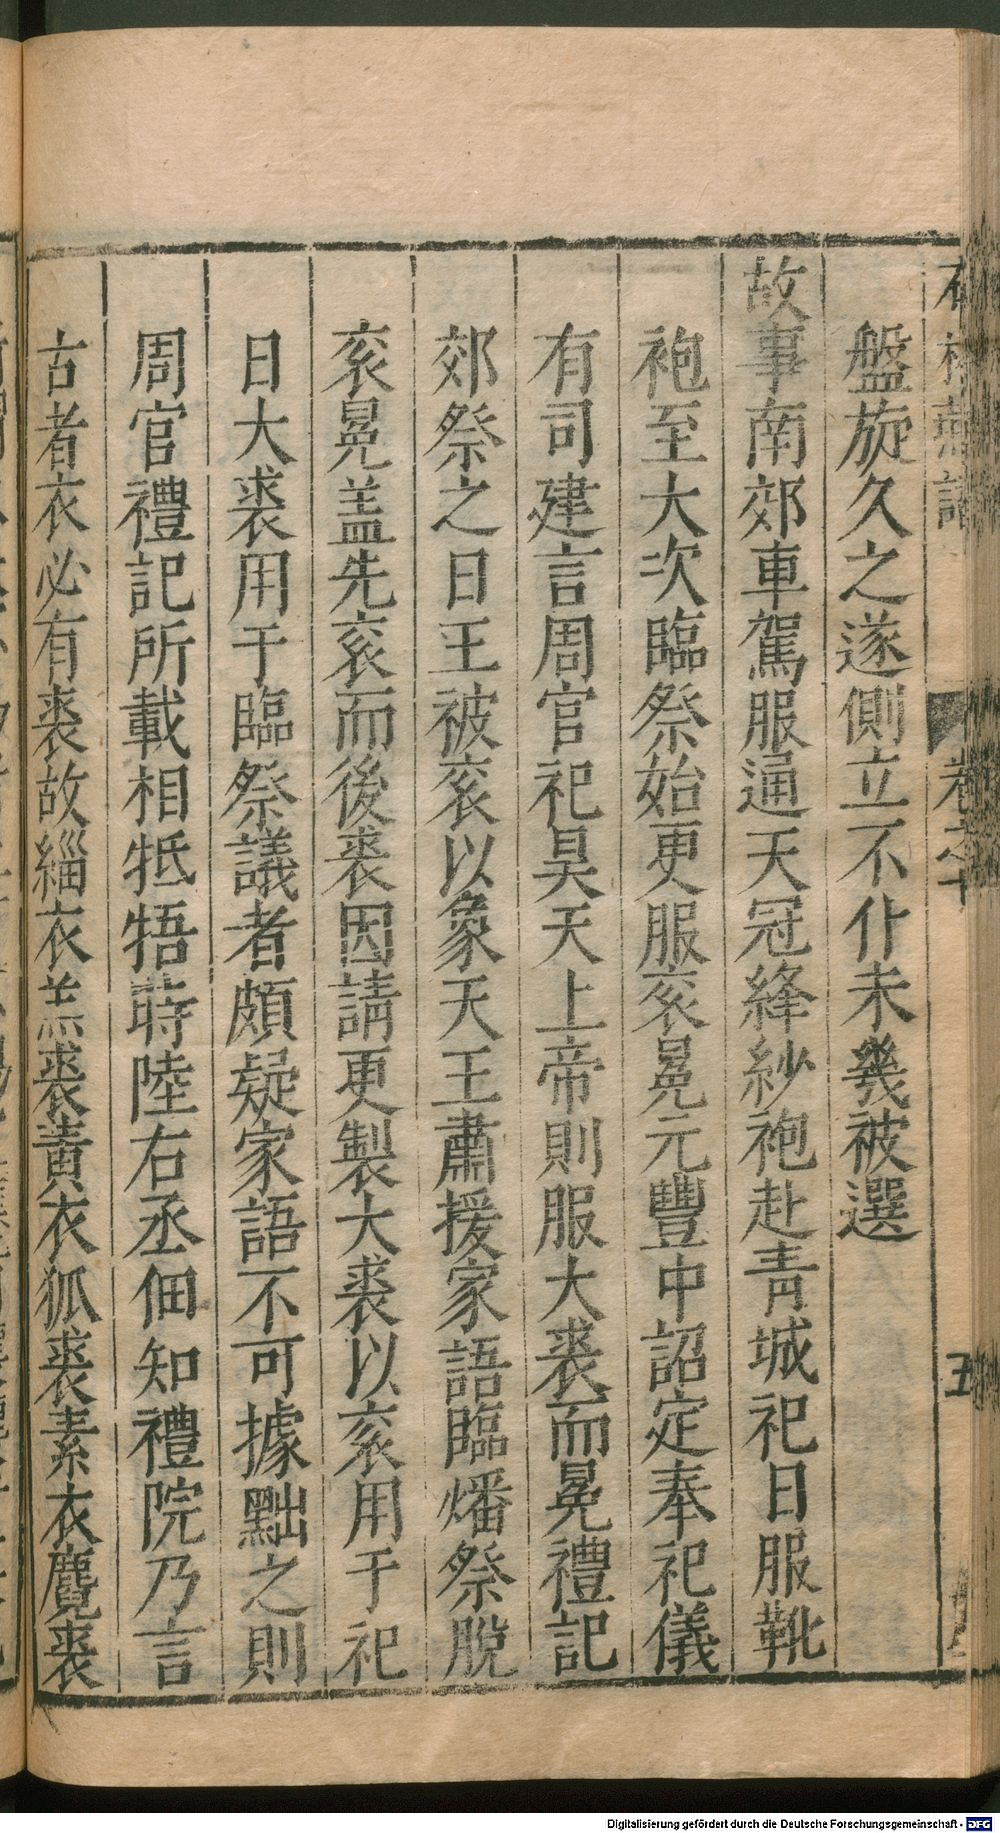 盤旋久之遂側立不仆未幾被選
故事南郊車駕服通天冠絳紗袍赴青城祀日服靴
袍至大次臨祭始更服衮冕元豐中詔定奉祀儀
有司建言周官祀昊天上帝則服大裘而冕禮記
郊祭之日王被衮以象天王肅援家語臨燔祭脫
衮冕盖先衮而後裘因請更製大裘以衮用于祀
日大裘用于臨祭議者頗疑家語不可據黜之則
周官禮記所載相牴牾時陸右丞佃知禮院乃言
古者衣必有裘故緇衣羔裘黃衣狐裘素衣麑裘
卷之十
五
Digitalisierung gefördert durch die Deutsche Forschungsgemeinschaft - DFG